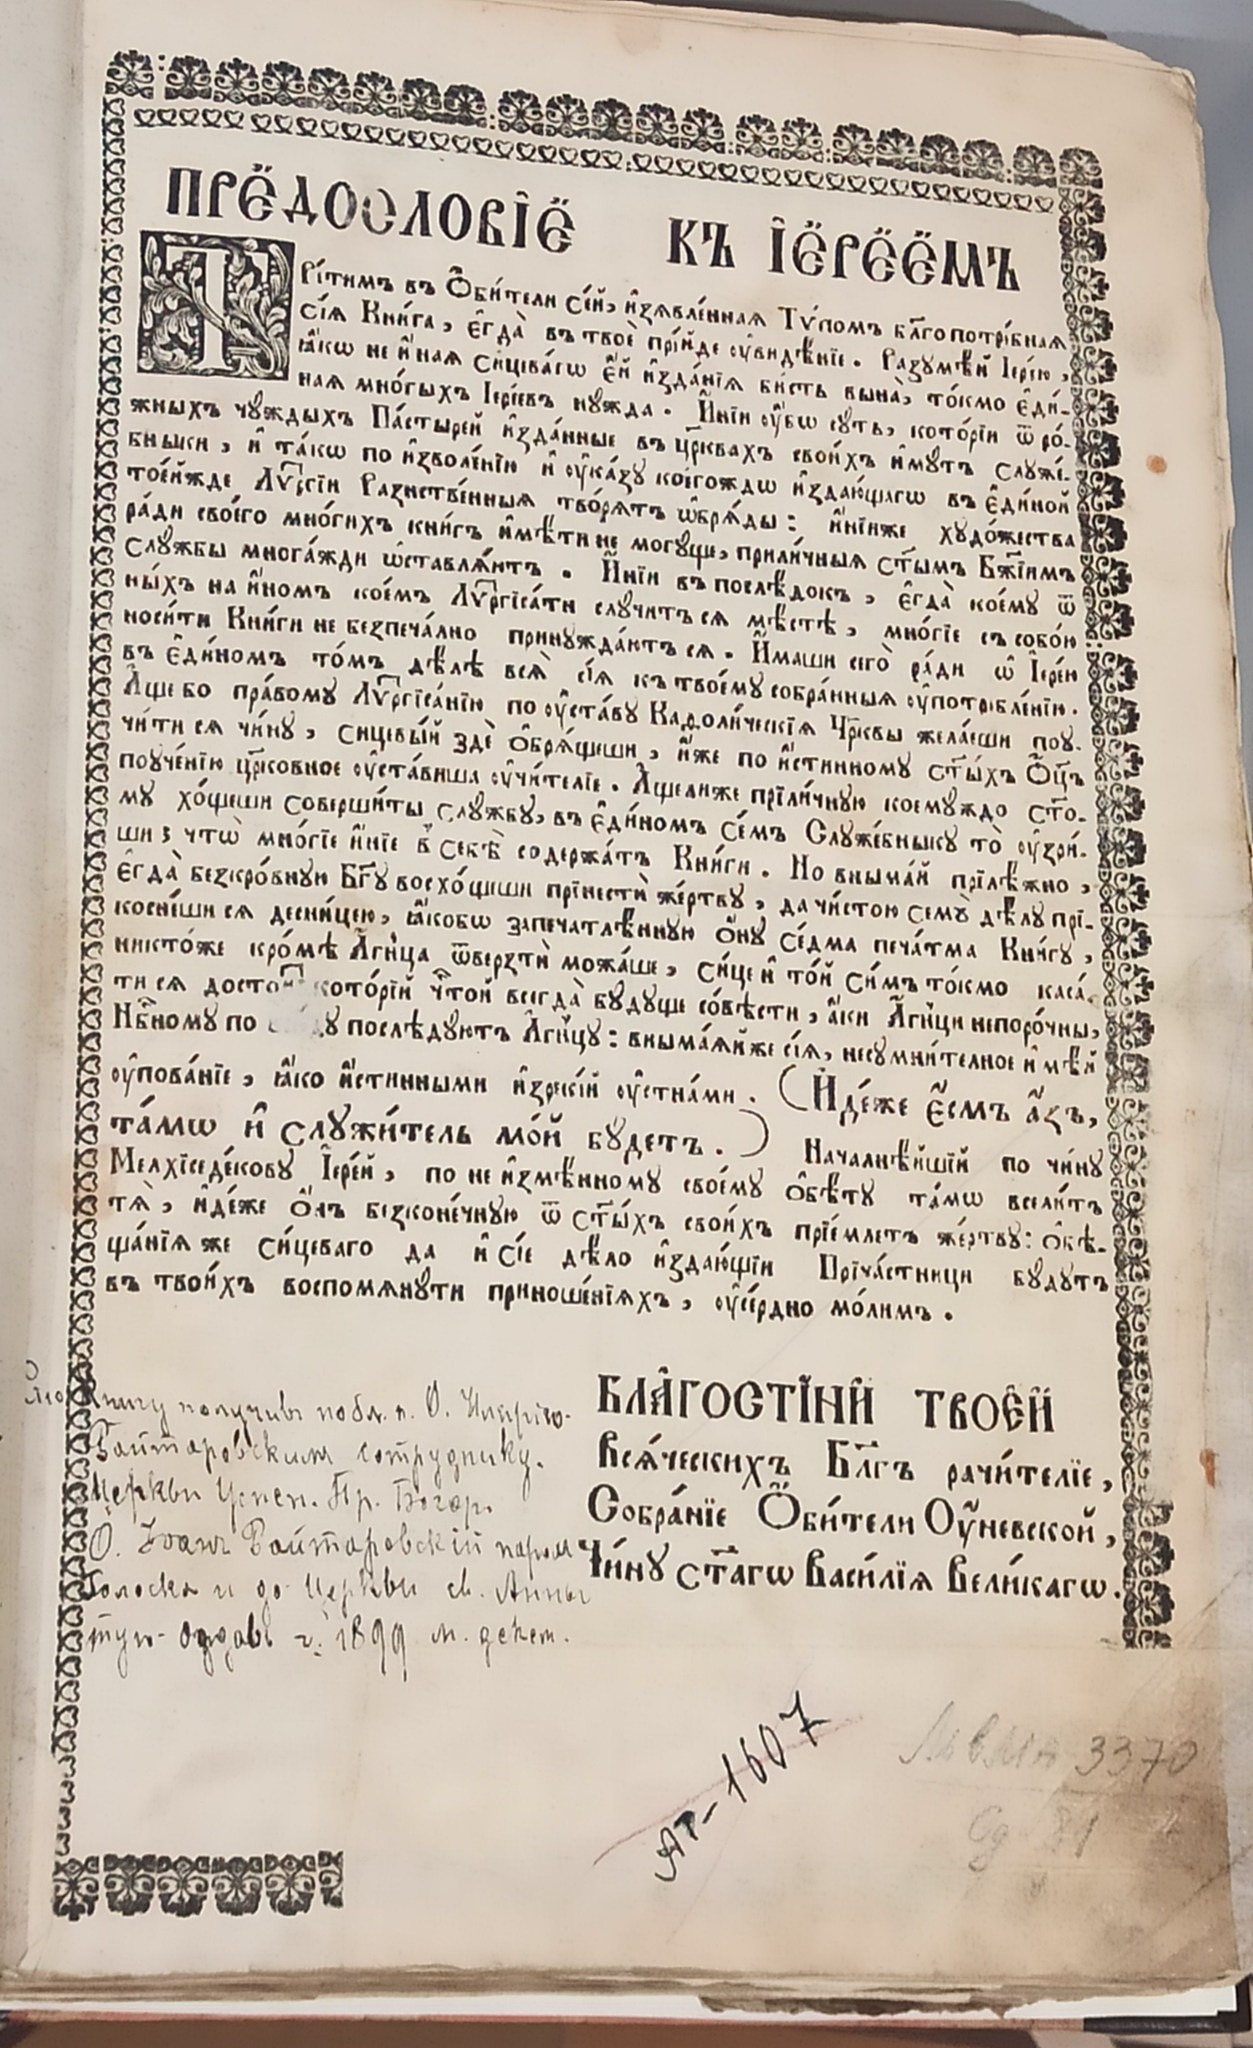 ПРЕДОСЛОВІЕ КЪ ІЕРЕЕМЪ
Трі́тимъ въ Ѻби́тели се́й, и҆з̾явле́нная Тѵ́помъ бл҃гопотре́бная
сїѧ̀ Кни́га, є҆гда̀ въ твоѐ прїи́де ᲂу҆ви́дѣнїе. Разумѣ́й Іере́ю,
ꙗ҆́кѡ не и҆́наѧ сицева́гѡ є҆́й и҆зда́нїѧ би́сть вына̀, то́кмо є҆ди́-
наѧ мно́гыхъ Іере́євъ нужда. И҆́нїи ᲂу҆́бѡ суть, кото́рїи ѿ ро́-
жныхъ чуждыхъ Па́стырей и҆зда́нные въ цр҃квахъ свои́хъ и҆́мутъ служе́-
бныки, и҆ та́кѡ по и҆зволе́нїю и҆ ᲂу҆ка́зу коегождѡ и҆здаю́щагѡ въ є҆ди́ной
тое́йжде Лѵⷮргі́и Разнстве́нныѧ творѧ́тъ ѡ҆брѧ́ды: и҆́нїиже худо́жества
ра́ди своегѡ мно́гихъ кни́гъ и҆мѣ́ти не могуще, прили́чныѧ ст҃ымъ Бж҃їимъ
службы многа́жди ѡ҆ставлѧ́ютъ. И҆́нїи въ послѣ́докъ, є҆гда̀ кое́му ѿ
ны́хъ на и҆́номъ кое́мъ Лѵⷮргіса́ти случитъсѧ мѣ́стѣ, мно́гїе съ собо́ю
носи́ти Кни́ги не безпеча́лно принужда́ютъсѧ. И҆́маши сегѡ̀ ра́ди ѡ҆ Іере́ю
въ є҆ди́номъ то́мъ дѣ́лѣ всѧ̀ сїѧ̀ къ твое́му собра́нныѧ ᲂу҆потребле́нїю.
А҆́ще бо пра́вому Лѵⷮргіса́нїю по ᲂу҆ста́ву Каѳоли́ческїѧ Цр҃квы жела́еши поу-
чи́тисѧ чи́ну, сицевы́й здѐ ѡ҆брѧ́щеши, и҆́же по и҆́стинному ст҃ы́хъ Ѻ҆ц҃ъ
поуче́нїю цр҃ковное ᲂу҆ста́виша ᲂу҆чи́телїе. А҆́щелиже прїли́чную коемуждо ст҃о-
му хо́щеши соверши́ты службу, въ є҆ди́номъ се́мъ Служе́бныку то̀ ᲂу҆зри-
ши, что̀ мно́гїе и҆́нїе в̾ себѣ̀ содержа́тъ Кни́ги. Но внима́й прїлѣ́жно,
є҆гда̀ безкро́вную Бг҃у восхо́щеши прїнестѝ же́ртву, да чи́стою семъ̀ дѣ́лу прї-
косне́шисѧ десни́цею, ꙗ҆́кобѡ запечатлѣ́нную ѻ҆́ну се́дма печа́тма Кни́гу,
никто́же кро́мѣ А҆́гнца ѿверзтѝ можа́ше, си́це и҆ то́й си́мъ то́кмо каса́-
тисѧ досто́ кото́рїй чⷭ҇той всегда̀ будуще со́вѣсти, а҆́ки А҆́гнци непоро́чны,
Нбⷭ҇ному по послѣ́дуютъ А҆́гнцу: внима́ѧйже сїѧ̀, несумни́телное и҆мѣ́й
ᲂу҆пова́нїе, ꙗ҆́ко и҆́стинными и҆зрекі́й ᲂу҆стна́ми. (И҆дѣ́же є҆́смъ а҆́зъ,
та́мѡ и҆ служи́тель мо́й будетъ.) Началнѣ́йшїй по чи́ну
Мелхїседе́кову Іере́й, по неи҆змѣ́нному своему ѡ҆бѣ́ту та́мѡ всели́тъ
тѧ̀, и҆дѣ́же ѻ҆́нъ безконе́чную ѿ ст҃ы́хъ свои́хъ прїе́млетъ же́ртву: ѡ҆бѣ-
ща́нїѧ же си́цеваго да и҆ сїе дѣ́ло и҆здаю́щїи Прїча́стници будутъ
въ твои́хъ воспомѧнути приноше́нїѧхъ, ᲂу҆се́рдно мо́лимъ.
БЛАГОСТІНИ ТВОЕЙ
Всѧ́ческихъ Бл҃гъ рачи́телїе,
Собра́нїе Ѻби́тели Оу҆невской,
Чи́ну ст҃агѡ Васи́лїѧ Вели́кагѡ.
Книгу получивъ О.
сотруднику.
Церкви Успен. Пр. Богор.
О. Іоанъ Войтаровскій
и до церкви св. Анны
1899
Ар-1607
3370